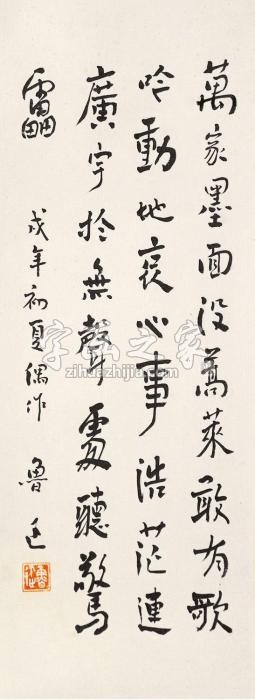 萬家墨面没蒿萊敢有歌
吟動地哀心事浩茫連
廣宇於無聲處聽驚
靁
戌年初夏偶作
魯迅
zihuazhijia.com